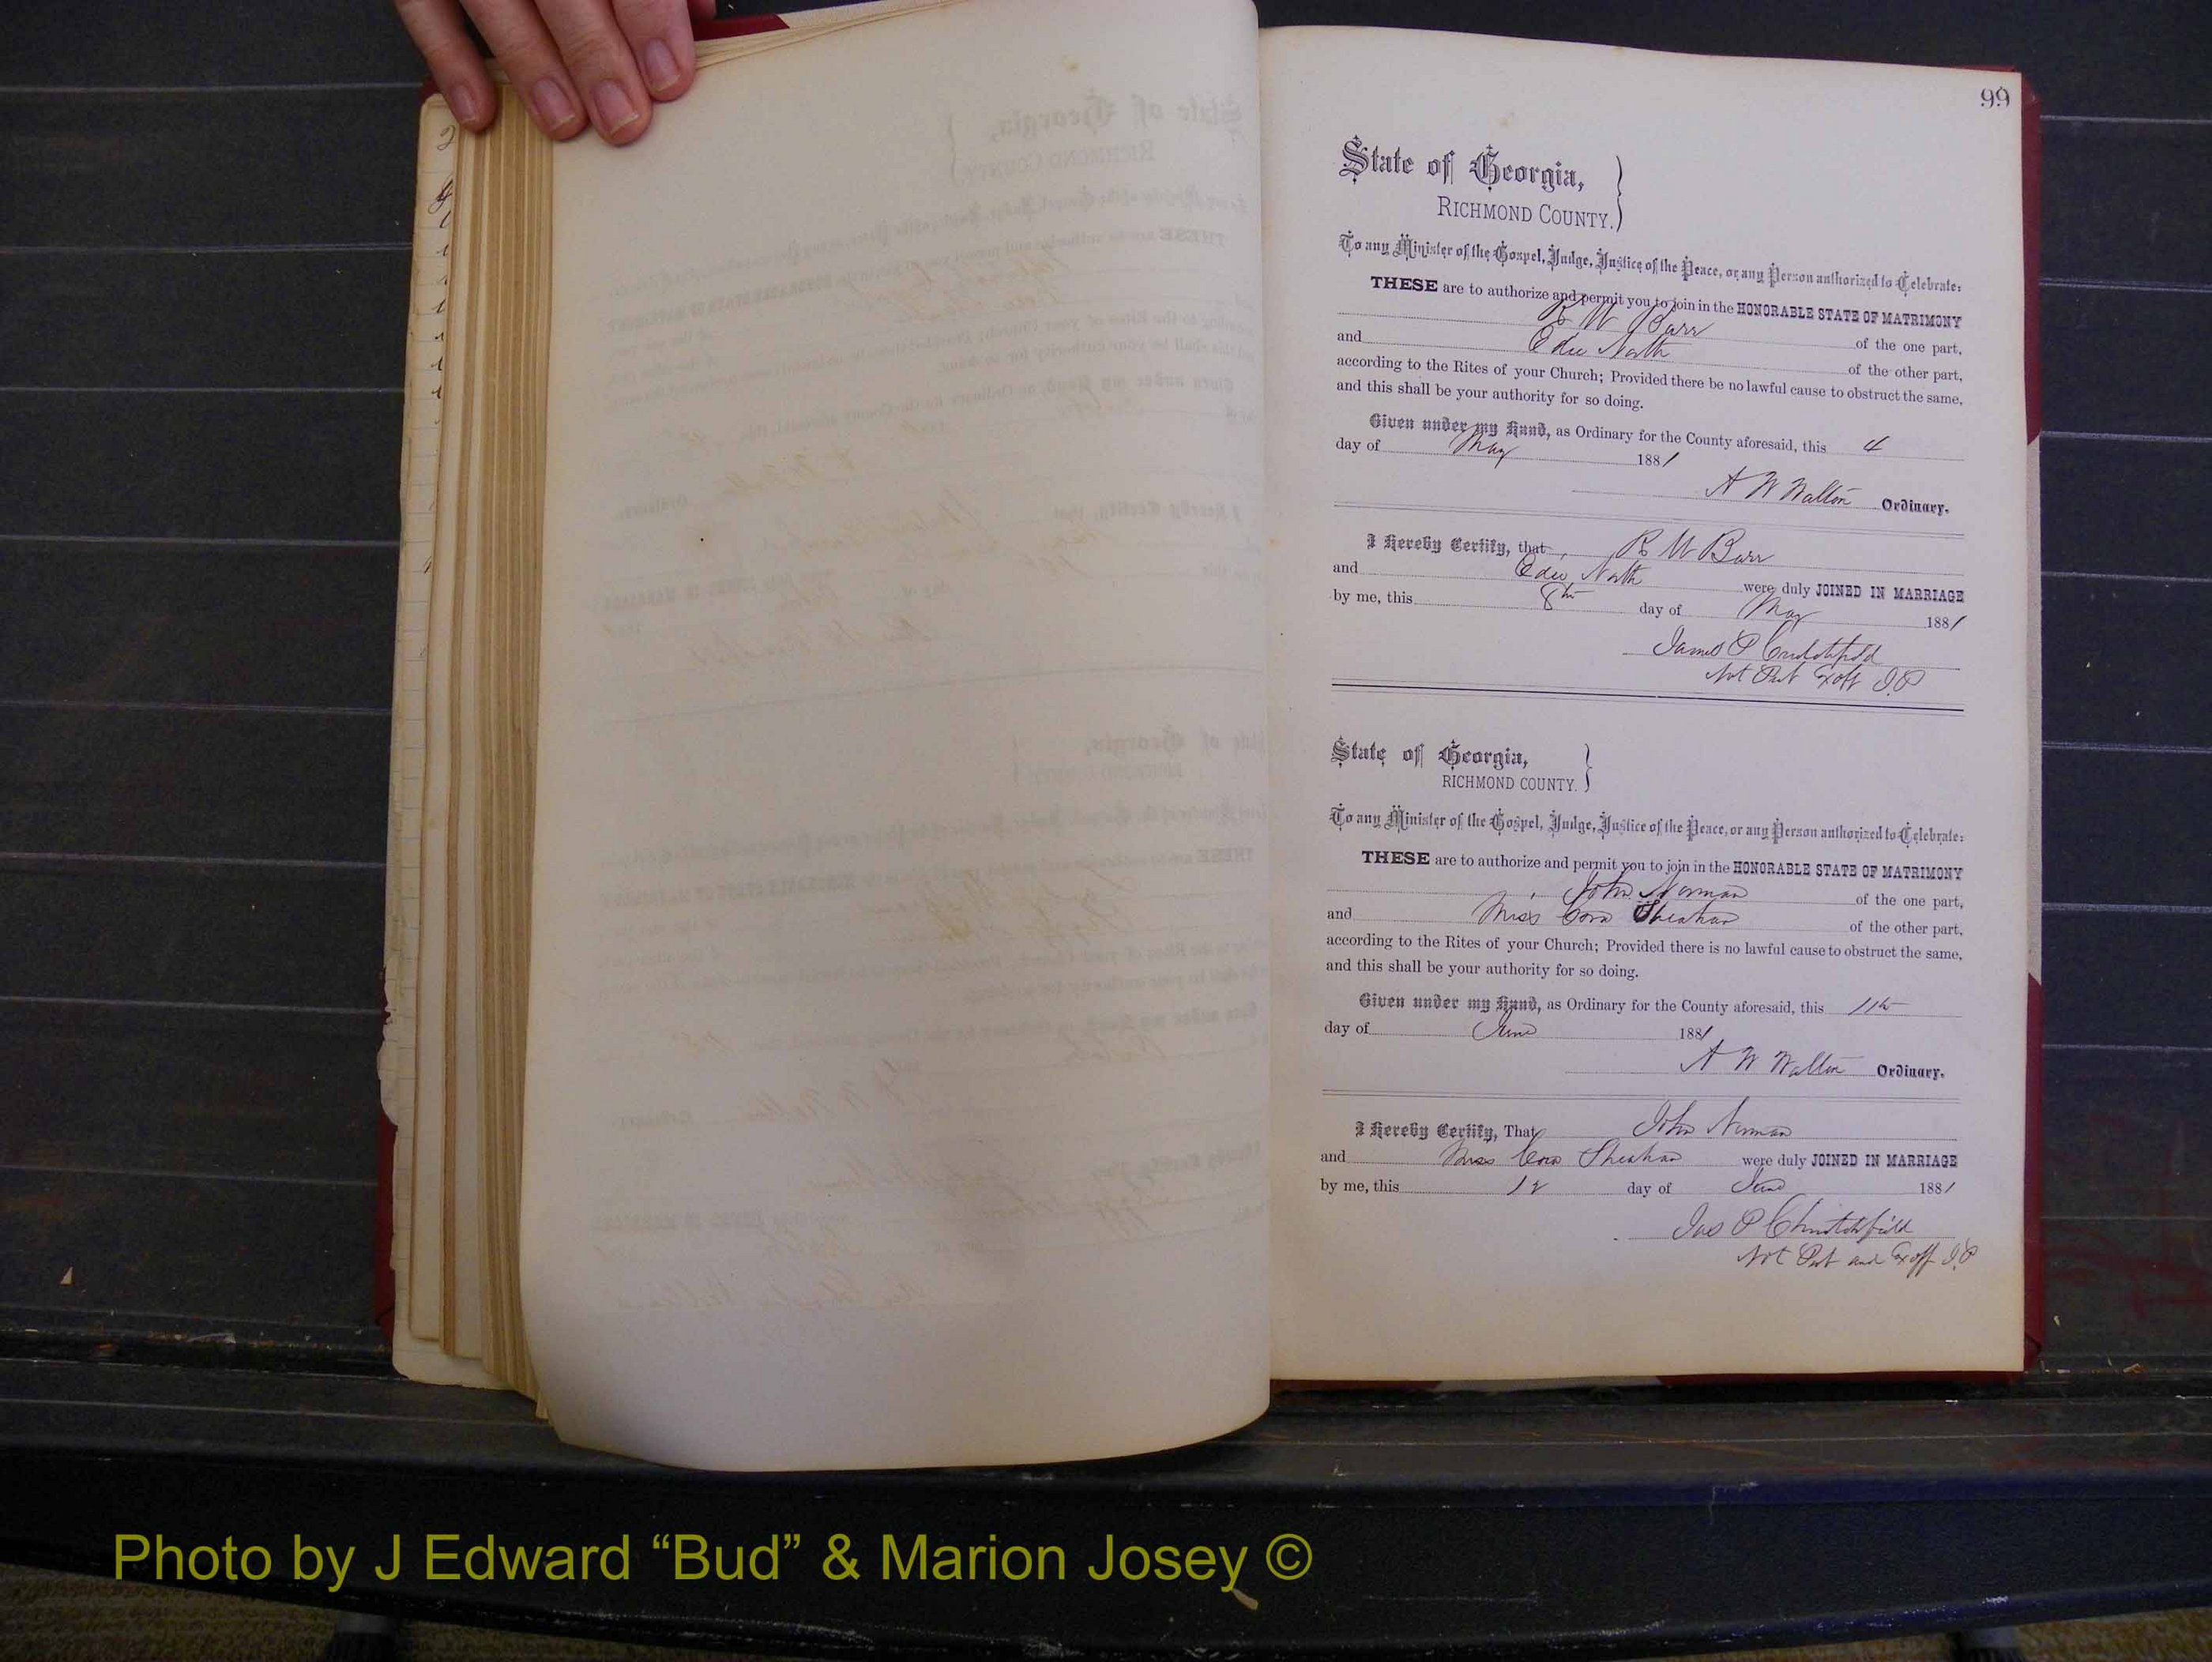 99
State of Georgia,
RICHMOND COUNTY.
To any Minister of the Gospel, Judge, Justice of the Peace, or any Person authorized to Celebrate:
THESE are to authorize and permit you to join in the HONORABLE STATE OF MATRIMONY
R W Barr of the one part,
and Edie North of the other part,
according to the Rites of your Church; Provided there be no lawful cause to obstruct the same,
and this shall be your authority for so doing.
Given under my Hand, as Ordinary for the County aforesaid, this 4
day of May 1881
A W Walton Ordinary.
I Hereby Certify, that R W Barr
and Edie North were duly JOINED IN MARRIAGE
by me, this 8th day of May 1881
James P Crutchfield
Not Pub Exoff J.P
State of Georgia,
RICHMOND COUNTY.
To any Minister of the Gospel, Judge, Justice of the Peace, or any Person authorized to Celebrate:
THESE are to authorize and permit you to join in the HONORABLE STATE OF MATRIMONY
John Norman of the one part,
and Miss Cora Sheahan of the other part,
according to the Rites of your Church; Provided there is no lawful cause to obstruct the same,
and this shall be your authority for so doing.
Given under my Hand, as Ordinary for the County aforesaid, this 11th
day of June 1881
A W Walton Ordinary.
I Hereby Certify, That John Norman
and Miss Cora Sheahan were duly JOINED IN MARRIAGE
by me, this 12 day of June 1881
Jas P Crutchfield
Not Pub and Exoff J.P
Photo by J Edward “Bud” & Marion Josey ©